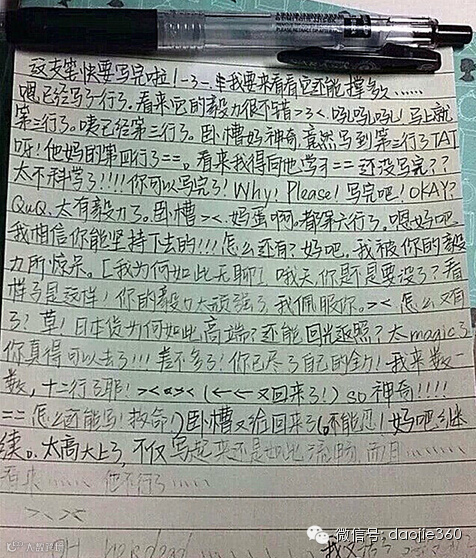 这支笔快要写完啦1-3-,我要来看看它还能撑多久……
嗯已经写了一行了。看来它的毅力很不错>3<。吼吼吼!马上就
第二行了。咦已经第三行了。卧槽好神奇,竟然写到第三行了TAT
呀!他妈的第四行了==。看来我得向他学习==还没写完??
太不科学了!!!!你可以写完了!Why!Please!写完吧!OKAY?
QuQ.太有毅力了。卧槽><.妈蛋啊。都第六行了。嗯好吧.
我相信你能坚持下去的!!!怎么还有?好吧.我被你的毅
力所惊呆。[我为何如此无聊]哦天你是不是要没了?看
样子是这样!你的毅力太顽强了,我佩服你。><怎么又有
了?草!日本货为何如此高端?还能回光返照?太magic了
你真得可以去了!!!差不多了!你已尽了自己的全力!我来数一
数,十二行了耶!><(←←又回来了!)so神奇!!!!
==怎么还能写!救命!)卧槽又给回来了(不能忍!好吧继
续。太高大上了,不仅写起来还是如此流畅,而且……
看来……他不行了……
>、<
微信号:daojie360